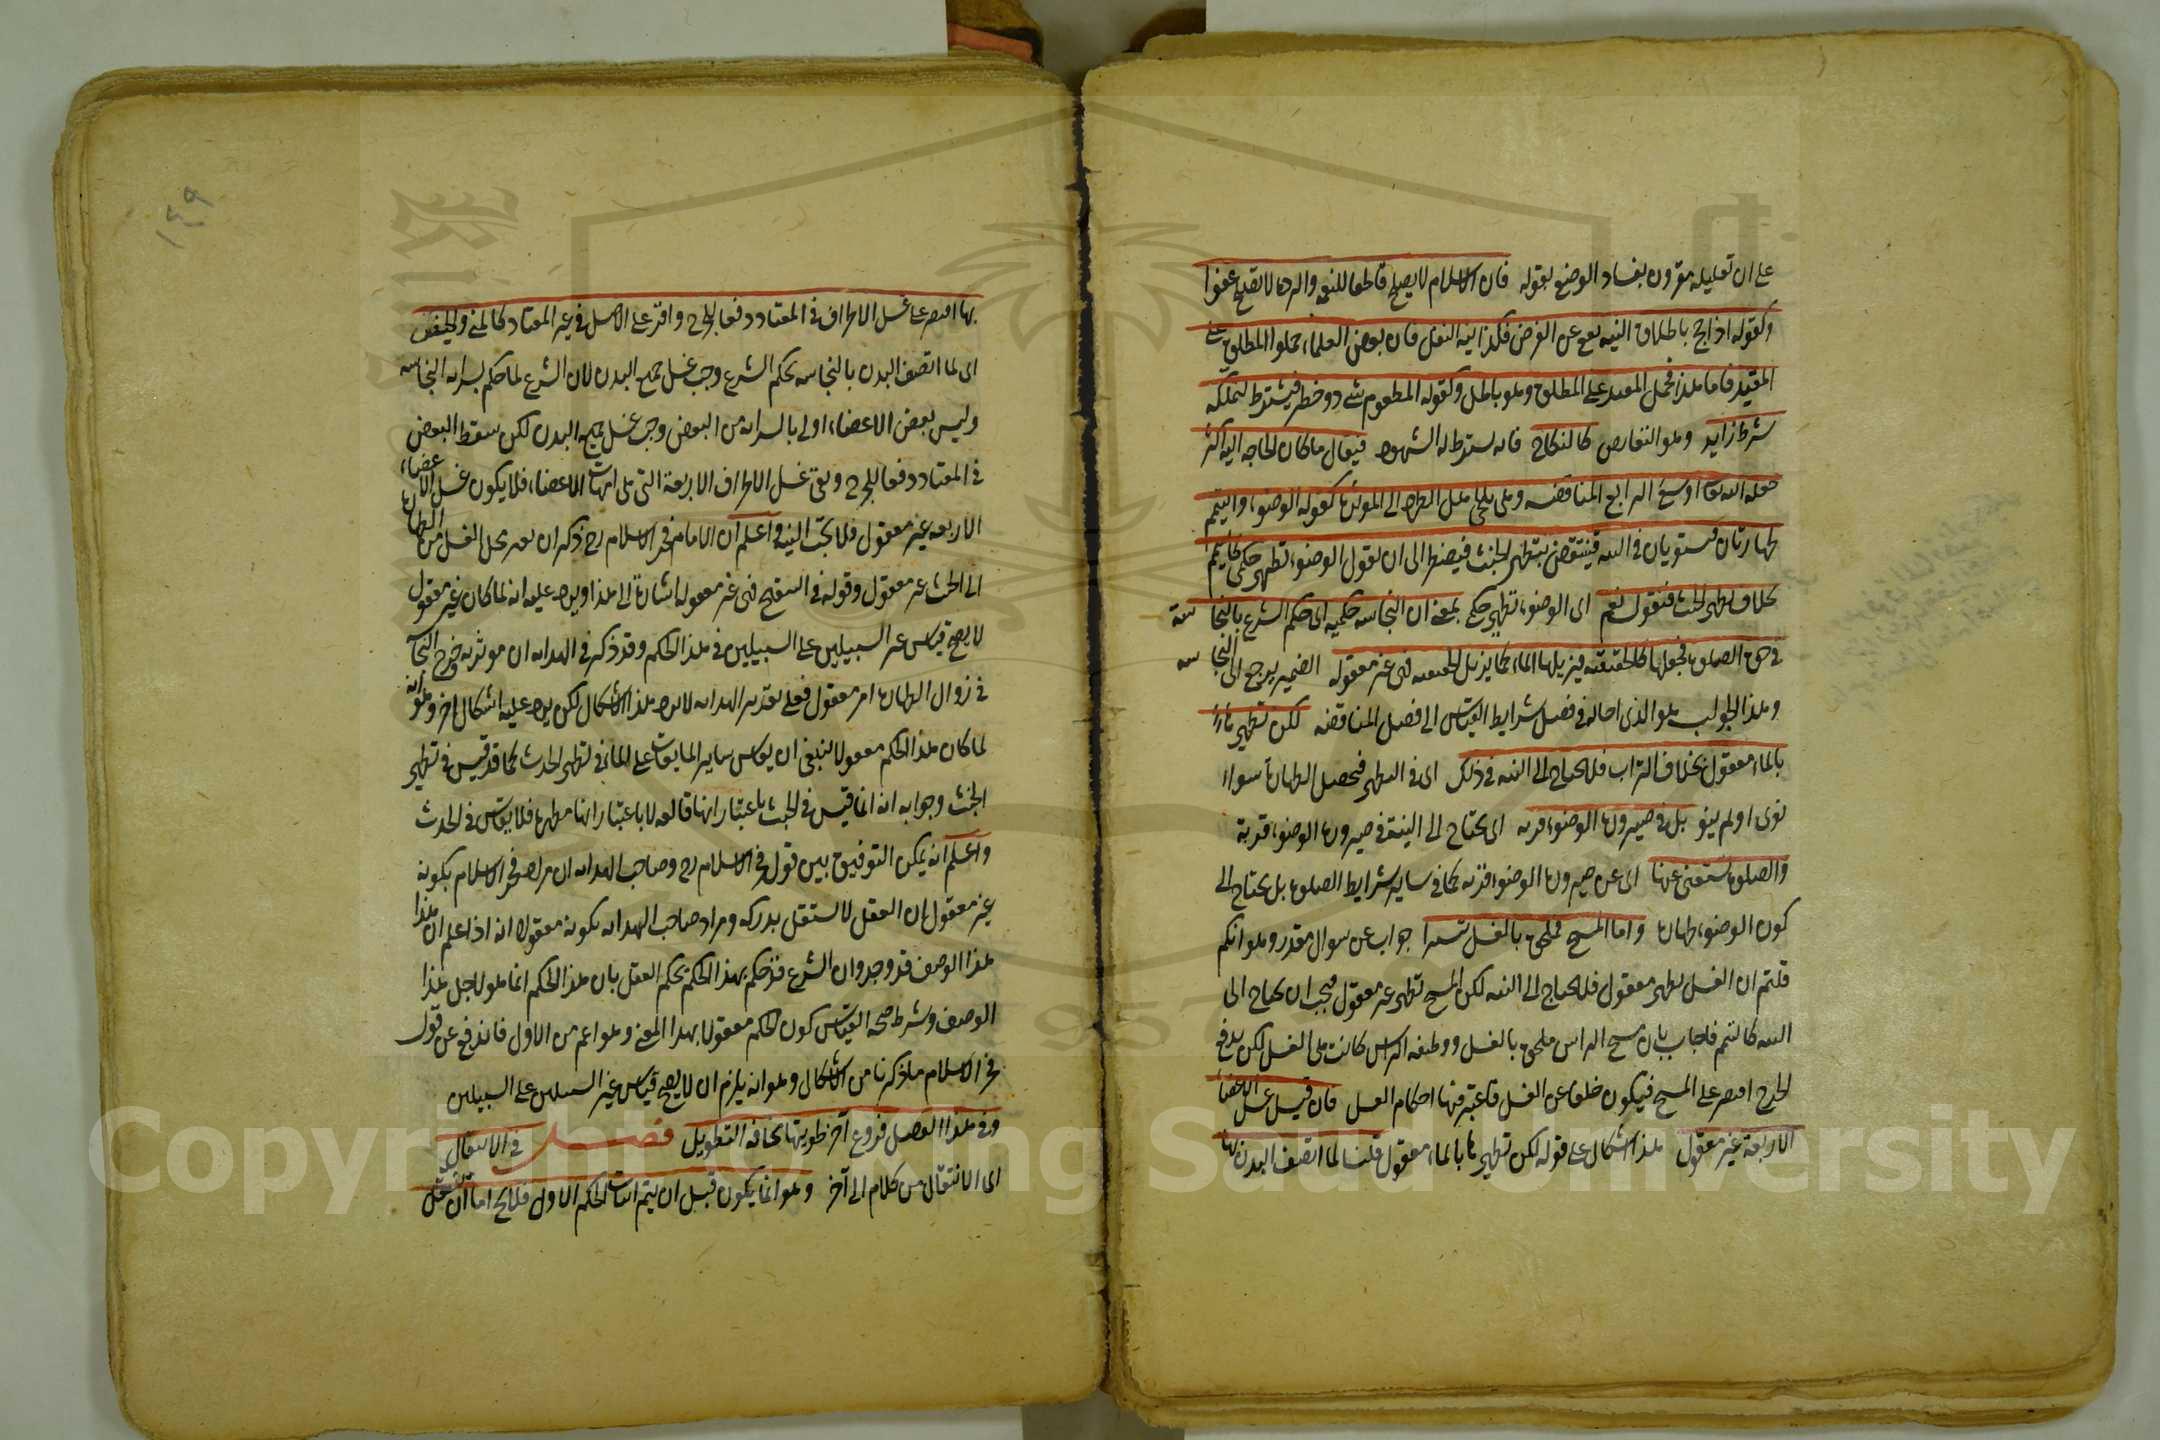 على ان تعليله مقرون بفساد الوضع بقوله فان الاسلام لا يصلح قاطعا للنعمة والردة لا تصلح عفوا
وكقوله اذا حج باطلاق النية يقع عن الفرض فكذا بنية النفل فان بعض العلماء حملوا المطلق على
المقيد فاما هذا فحمل المقيد على المطلق وهو باطل وكقوله المطعوم شئ ذو خطر فيشترط لتملكه
شرط زايد وهو التقابض كالنكاح فانه يشترط له الشهود فيقال ما كان الحاجة اليه اكثر
جعله الله تعا اوسع الرابع المناقضة وهي تلجئ اهل الطرد الى المؤثرة كقوله الوضوء والتيمم
طهارتان فيستويان في النية فينتقض بتطهير الخبث فيضطر الى ان يقول الوضوء تطهير حكمي كالتيمم
بخلاف تطهير الخبث فنقول نعم اى الوضوء تطهير حكمي بمعنى ان النجاسة حكمية اى حكم الشرع بالنجاسة
في حق الصلوة فجعلها كالحقيقة يزيلها الماء كما يزيل الحقيقة فهي غير معقولة الضمير يرجع الى النجاسة
وهذا الجواب هو الذي احاله في فصل شرايط القياس الى فصل المناقضة لكن تطهيرها
بالماء معقول بخلاف التراب فلا يحتاج الى النية في ذلك اى في التطهير فيحصل الطهارة سواء
نوى او لم ينو بل في صيرورة الوضوء قربة اى يحتاج الى النية في صيرورة الوضوء قربة
والصلوة تستغنى عنها اى عن صيرورة الوضوء قربة كما في ساير شرايط الصلوة بل يحتاج الى
كون الوضوء طهارة واما المسح فملحق بالغسل تيسيرا جواب عن سوال مقدر وهو انكم
قلتم ان الغسل تطهير معقول فلا يحتاج الى النية لكن المسح تطهير غير معقول فيجب ان يحتاج الى
النية كالتيمم فاجاب بان مسح الراس ملحق بالغسل ووظيفة الراس كانت هي الغسل لكن لدفع
الحرج اقتصر على المسح فيكون خلفا عن الغسل فاعتبر فيها احكام الغسل فان قيل غسل الاعضاء
الاربعة غير معقول هذا اشكال على قوله لكن تطهيرها بالماء معقول قلنا لما اتصف البدن بها
بها اقتصر على غسل الاطراف في المعتاد دفعا للحرج واقر على الاصل في غير المعتاد كالمني والحيض
اى لما اتصف البدن بالنجاسة بحكم الشرع وجب غسل جميع البدن لان الشرع لما حكم بسراية النجاسة
وليس بعض الاعضاء اولى بالسراية من البعض وجب غسل جميع البدن لكن سقط البعض
في المعتاد دفعا للحرج وبقي غسل الاطراف الاربعة التي هي امهات الاعضاء فلا يكون غسل الاعضاء
الاربعة غير معقول فلا يجب النية واعلم ان الامام فخر الاسلام رح ذكر ان تغير محل الغسل من الطهارة
الى الخبث غير معقول وقوله في التنقيح فهي غير معقولة اشارة الى هذا ويرد عليه انه لما كان غير معقول
لا يصح قياس غير السبيلين على السبيلين في هذا الحكم وقد ذكر في الهداية ان موثرية خروج النجاسة
في زوال الطهارة امر معقول فعلى تقدير الهداية لا يرد هذا الاشكال لكن يرد عليه اشكال اخر وهو انه
لما كان هذا الحكم معقولا ينبغي ان يقاس ساير المايعات على الماء في تطهير الحدث كما قد قيس في تطهير
الخبث وجوابه انه انما قيس في الخبث باعتبار انها قالعة لا باعتبار انها مطهرة فلا يقاس في الحدث
واعلم انه يمكن التوفيق بين قول فخر الاسلام رح وصاحب الهداية ان مراد فخر الاسلام بكونه
غير معقول ان العقل لا يستقل بدركه ومراد صاحب الهداية بكونه معقولا انه اذا علم ان هذا
هذا الوصف قد وجد وان الشرع قد حكم بهذا الحكم يحكم العقل بان هذا الحكم انما هو لاجل هذا
الوصف وشرط صحة القياس كون الحكم معقولا بهذا المعنى وهو اعم من الاول فاندفع عن قول
فخر الاسلام ما ذكرنا من الاشكال وهو انه يلزم ان لا يصح قياس غير السبيلين على السبيلين
وفي هذا الفصل فروع اخر طويتها مخافة التطويل فصل في الانتقال
اى الانتقال من كلام الى آخر وهو انما يكون قبل ان يتم اثبات الحكم الاول فلا يخ اما ان ينتقل
١٤٩
Copyright © King Saud University